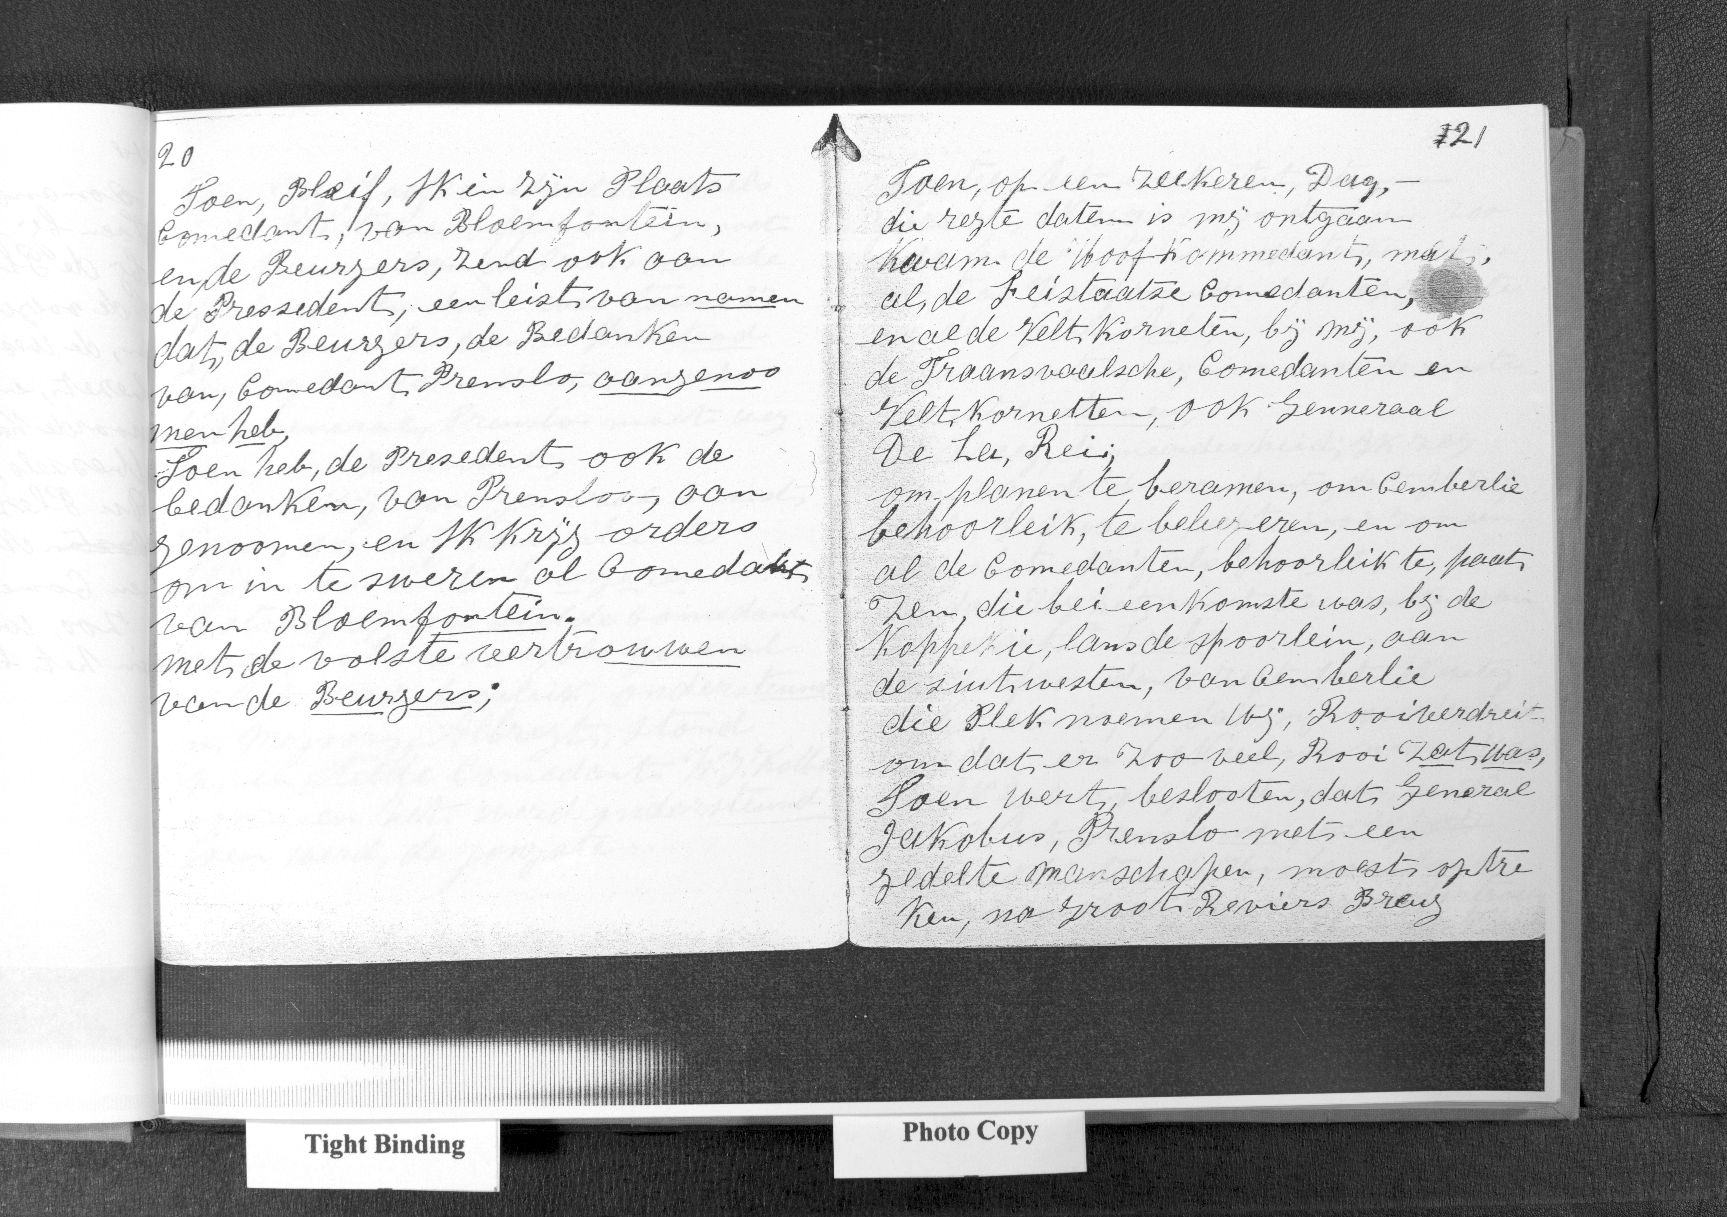 20
Toen, Bleif, Ik in zijn Plaats
Comedant, van Bloemfontein,
en de Beurgers, zend ook aan
de Pressedent, een leist van namen
dat, de Beurgers, de Bedanken
van, Comedant Prenslo, aangenoo
men heb,
Toen heb, de Presedent ook de
bedanken, van Prensloo, aan
genoomen, en Ik Krijg orders
om in te sweren al Comedant
van Bloemfontein.
met de volste vertrouwen
van de Beurgers;
121
Toen, op een zeekeren, Dag,—
die regte datem is mij ontgaan
Kwam de Hoof Kommedant, met,
al, de Feistaatse Comedanten,
en al de Velt Korneten, bij mij, ook
de Traansvaalsche, Comedanten en
Velt Kornetten, ook Genneraal
De La, Rei;
om planen te beramen, om Cemberlie
behoorleik, te beleegeren, en om
al de Comedanten, behoorleik te, paat
zen, die bei een Komste was, bij de
Koppekie, lans de spoorlein, aan
de suit westen, van Cemberlie
die Plek noemen wij, Rooiverdreit
om dat er zoo veel, Rooi Zat was,
Toen wert, beslooten, dat General
Jakobus, Prenslo met een
gedelte manschapen, moest optre
Ken, na groot Reviers Breug
Tight Binding
Photo Copy